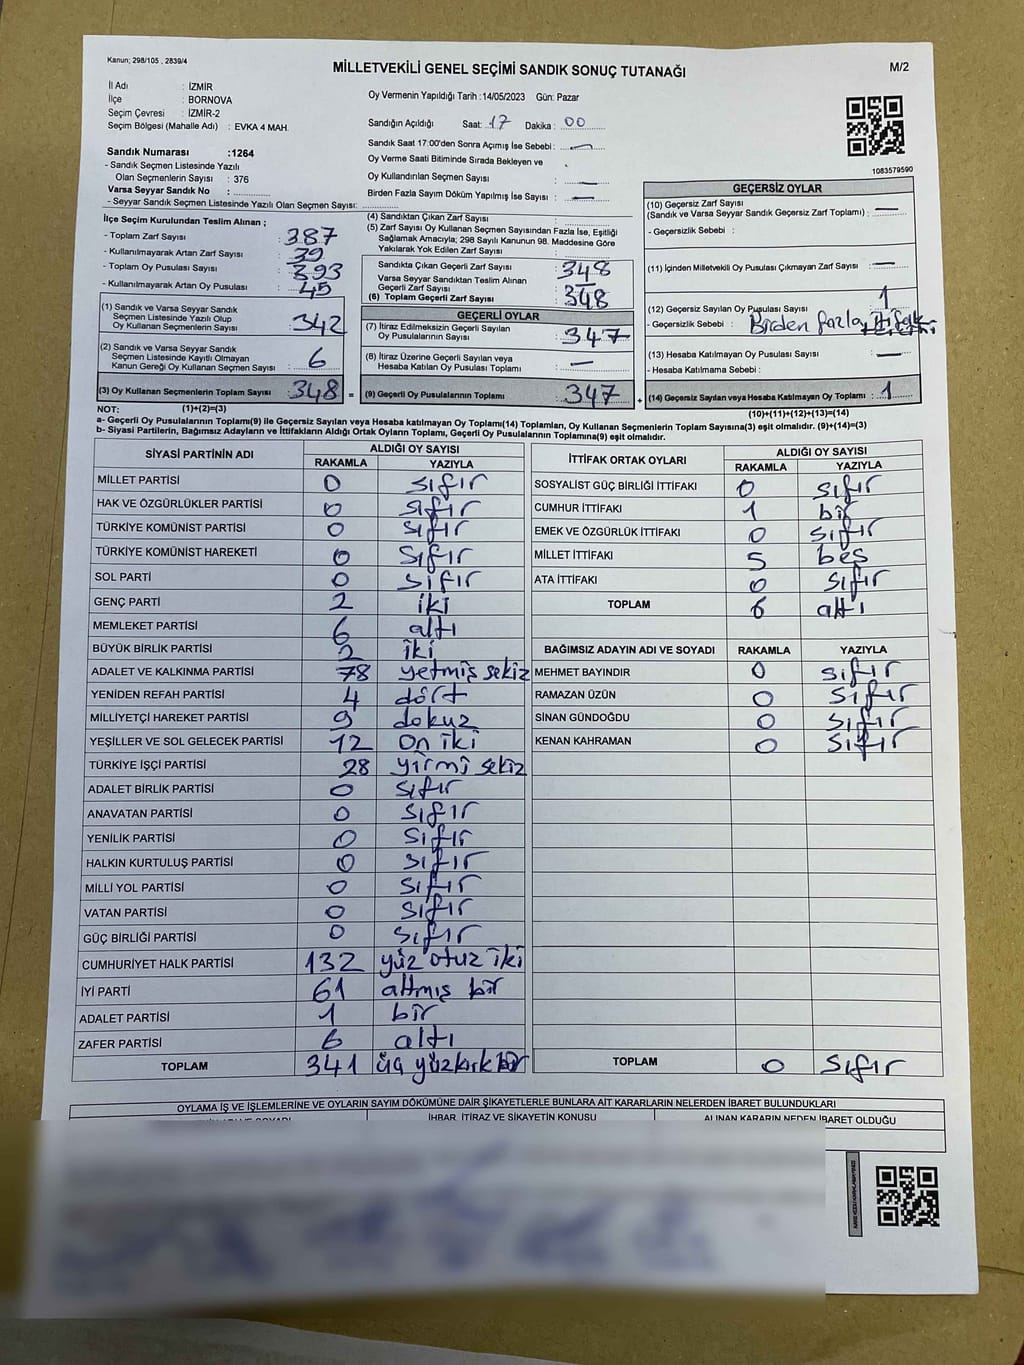 Kanun; 298/105 , 2839/4
MİLLETVEKİLİ GENEL SEÇİMİ SANDIK SONUÇ TUTANAĞI
M/2
İl Adı : İZMİR
İlçe : BORNOVA
Seçim Çevresi : İZMİR-2
Seçim Bölgesi (Mahalle Adı) : EVKA 4 MAH.
Sandık Numarası :1264
- Sandık Seçmen Listesinde Yazılı
Olan Seçmenlerin Sayısı : 376
Varsa Seyyar Sandık No :
- Seyyar Sandık Seçmen Listesinde Yazılı Olan Seçmen Sayısı:
Oy Vermenin Yapıldığı Tarih :14/05/2023 Gün: Pazar
Sandığın Açıldığı Saat: 17 Dakika : 00
Sandık Saat 17:00'den Sonra Açımış İse Sebebi : —
Oy Verme Saati Bitiminde Sırada Bekleyen ve
Oy Kullandırılan Seçmen Sayısı : —
Birden Fazla Sayım Döküm Yapılmış İse Sayısı : —
1083579590
İlçe Seçim Kurulundan Teslim Alınan ;
- Toplam Zarf Sayısı : 387
- Kullanılmayarak Artan Zarf Sayısı : 39
- Toplam Oy Pusulası Sayısı : 393
- Kullanılmayarak Artan Oy Pusulası : 45
(1) Sandık ve Varsa Seyyar Sandık
Seçmen Listesinde Yazılı Olup
Oy Kullanan Seçmenlerin Sayısı : 342
(2) Sandık ve Varsa Seyyar Sandık
Seçmen Listesinde Kayıtlı Olmayan
Kanun Gereği Oy Kullanan Seçmen Sayısı : 6
(3) Oy Kullanan Seçmenlerin Toplam Sayısı : 348 =
(4) Sandıktan Çıkan Zarf Sayısı :
(5) Zarf Sayısı Oy Kullanan Seçmen Sayısından Fazla İse, Eşitliği
Sağlamak Amacıyla; 298 Sayılı Kanunun 98. Maddesine Göre
Yakılarak Yok Edilen Zarf Sayısı :
Sandıkta Çıkan Geçerli Zarf Sayısı : 348
Varsa Seyyar Sandıktan Teslim Alınan
Geçerli Zarf Sayısı : —
(6) Toplam Geçerli Zarf Sayısı : 348
GEÇERLİ OYLAR
(7) İtiraz Edilmeksizin Geçerli Sayılan
Oy Pusulalarının Sayısı : 347
(8) İtiraz Üzerine Geçerli Sayılan veya
Hesaba Katılan Oy Pusulası Toplamı : —
(9) Geçerli Oy Pusulalarının Toplamı : 347 +
GEÇERSİZ OYLAR
(10) Geçersiz Zarf Sayısı
(Sandık ve Varsa Seyyar Sandık Geçersiz Zarf Toplamı) : —
- Geçersizlik Sebebi :
(11) İçinden Milletvekili Oy Pusulası Çıkmayan Zarf Sayısı : —
(12) Geçersiz Sayılan Oy Pusulası Sayısı : 1
- Geçersizlik Sebebi : Birden fazla
(13) Hesaba Katılmayan Oy Pusulası Sayısı : —
- Hesaba Katılmama Sebebi :
(14) Geçersiz Sayılan veya Hesaba Katılmayan Oy Toplamı : 1
NOT: (1)+(2)=(3)
(10)+(11)+(12)+(13)=(14)
a- Geçerli Oy Pusulalarının Toplamı(9) ile Geçersiz Sayılan veya Hesaba katılmayan Oy Toplamı(14) Toplamları, Oy Kullanan Seçmenlerin Toplam Sayısına(3) eşit olmalıdır. (9)+(14)=(3)
b- Siyasi Partilerin, Bağımsız Adayların ve İttifakların Aldığı Oyların Toplamı, Geçerli Oy Pusulalarının Toplamına(9) eşit olmalıdır.
SİYASİ PARTİNİN ADI
ALDIĞI OY SAYISI
RAKAMLA YAZIYLA
MİLLET PARTİSİ 0 sıfır
HAK VE ÖZGÜRLÜKLER PARTİSİ 0 sıfır
TÜRKİYE KOMÜNİST PARTİSİ 0 sıfır
TÜRKİYE KOMÜNİST HAREKETİ 0 sıfır
SOL PARTİ 0 sıfır
GENÇ PARTİ 2 iki
MEMLEKET PARTİSİ 6 altı
BÜYÜK BİRLİK PARTİSİ 2 iki
ADALET VE KALKINMA PARTİSİ 78 yetmiş sekiz
YENİDEN REFAH PARTİSİ 4 dört
MİLLİYETÇİ HAREKET PARTİSİ 9 dokuz
YEŞİLLER VE SOL GELECEK PARTİSİ 12 on iki
TÜRKİYE İŞÇİ PARTİSİ 28 yirmi sekiz
ADALET BİRLİK PARTİSİ 0 sıfır
ANAVATAN PARTİSİ 0 sıfır
YENİLİK PARTİSİ 0 sıfır
HALKIN KURTULUŞ PARTİSİ 0 sıfır
MİLLİ YOL PARTİSİ 0 sıfır
VATAN PARTİSİ 0 sıfır
GÜÇ BİRLİĞİ PARTİSİ 0 sıfır
CUMHURİYET HALK PARTİSİ 132 yüz otuz iki
İYİ PARTİ 61 altmış bir
ADALET PARTİSİ 1 bir
ZAFER PARTİSİ 6 altı
TOPLAM 341 üç yüz kırk bir
İTTİFAK ORTAK OYLARI
ALDIĞI OY SAYISI
RAKAMLA YAZIYLA
SOSYALİST GÜÇ BİRLİĞİ İTTİFAKI 0 sıfır
CUMHUR İTTİFAKI 1 bir
EMEK VE ÖZGÜRLÜK İTTİFAKI 0 sıfır
MİLLET İTTİFAKI 5 beş
ATA İTTİFAKI 0 sıfır
TOPLAM 6 altı
BAĞIMSIZ ADAYIN ADI VE SOYADI RAKAMLA YAZIYLA
MEHMET BAYINDIR 0 sıfır
RAMAZAN ÜZÜN 0 sıfır
SİNAN GÜNDOĞDU 0 sıfır
KENAN KAHRAMAN 0 sıfır
TOPLAM 0 sıfır
OYLAMA İŞ VE İŞLEMLERİNE VE OYLARIN SAYIM DÖKÜMÜNE DAİR ŞİKAYETLERLE BUNLARA AİT KARARLARIN NELERDEN İBARET BULUNDUKLARI
İHBAR, İTİRAZ VE ŞİKAYETİN KONUSU
ALINAN KARARIN NEDEN İBARET OLDUĞU